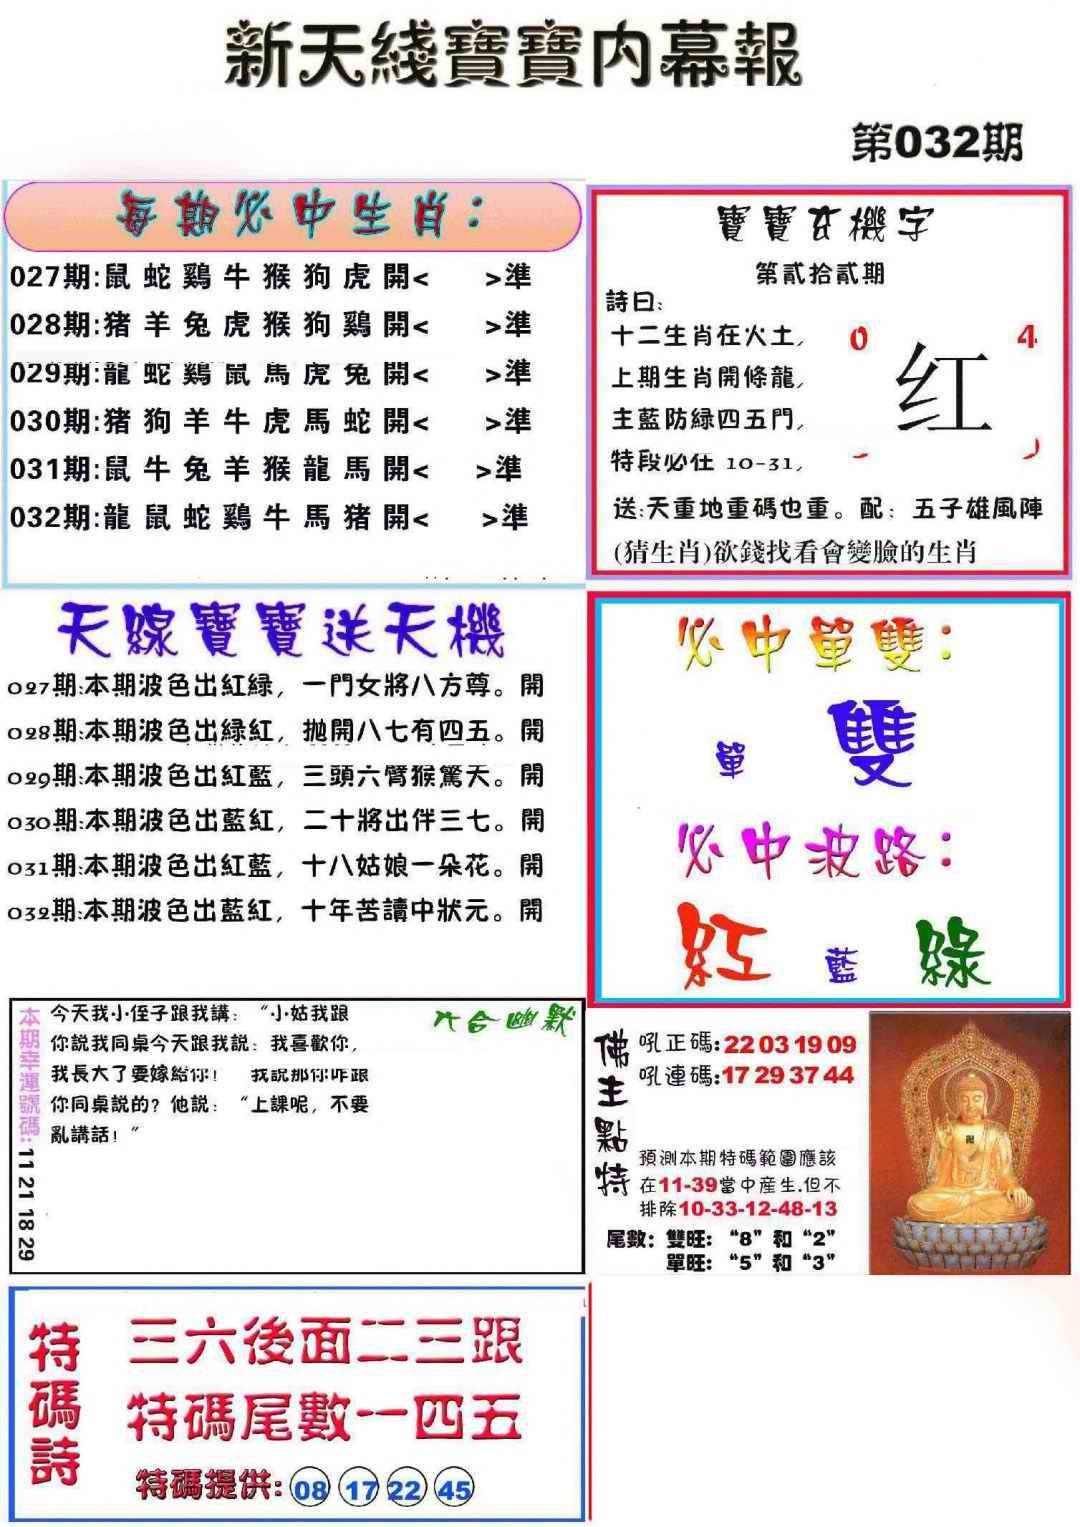 新天綫寶寶内幕報
第032期
每期必中生肖：
027期:鼠 蛇 鷄 牛 猴 狗 虎 開< >準
028期:猪 羊 兔 虎 猴 狗 鷄 開< >準
029期:龍 蛇 鷄 鼠 馬 虎 兔 開< >準
030期:猪 狗 羊 牛 虎 馬 蛇 開< >準
031期:鼠 牛 兔 羊 猴 龍 馬 開< >準
032期:龍 鼠 蛇 鷄 牛 馬 猪 開< >準
寶寶玄機字
第貳拾貳期
詩曰:
十二生肖在火土,
上期生肖開條龍,
主藍防緑四五門,
特段必在 10-31,
0 4
红
送:天重地重碼也重。配：五子雄風陣
(猜生肖)欲錢找看會變臉的生肖
天線寶寶送天機
027期:本期波色出紅緑，一門女將八方尊。開
028期:本期波色出緑紅，抛開八七有四五。開
029期:本期波色出紅藍，三頭六臂猴驚天。開
030期:本期波色出藍紅，二十將出伴三七。開
031期:本期波色出紅藍，十八姑娘一朵花。開
032期:本期波色出藍紅，十年苦讀中狀元。開
必中單雙：
單 雙
必中波路：
紅 藍 綠
本期幸運號碼: 11 21 18 29
六合幽默
今天我小侄子跟我講：“小姑我跟
你說我同桌今天跟我説：我喜歡你,
我長大了要嫁給你！ 我説那你咋跟
你同桌説的？他説：“上課呢，不要
亂講話！”
佛主點特
吼正碼:22 03 19 09
吼連碼:17 29 37 44
預測本期特碼範圍應該
在11-39當中産生.但不
排除10-33-12-48-13
尾數：雙旺：“8”和“2”
單旺：“5”和“3”
特碼詩
三六後面二三跟
特碼尾數一四五
特碼提供: 08 17 22 45